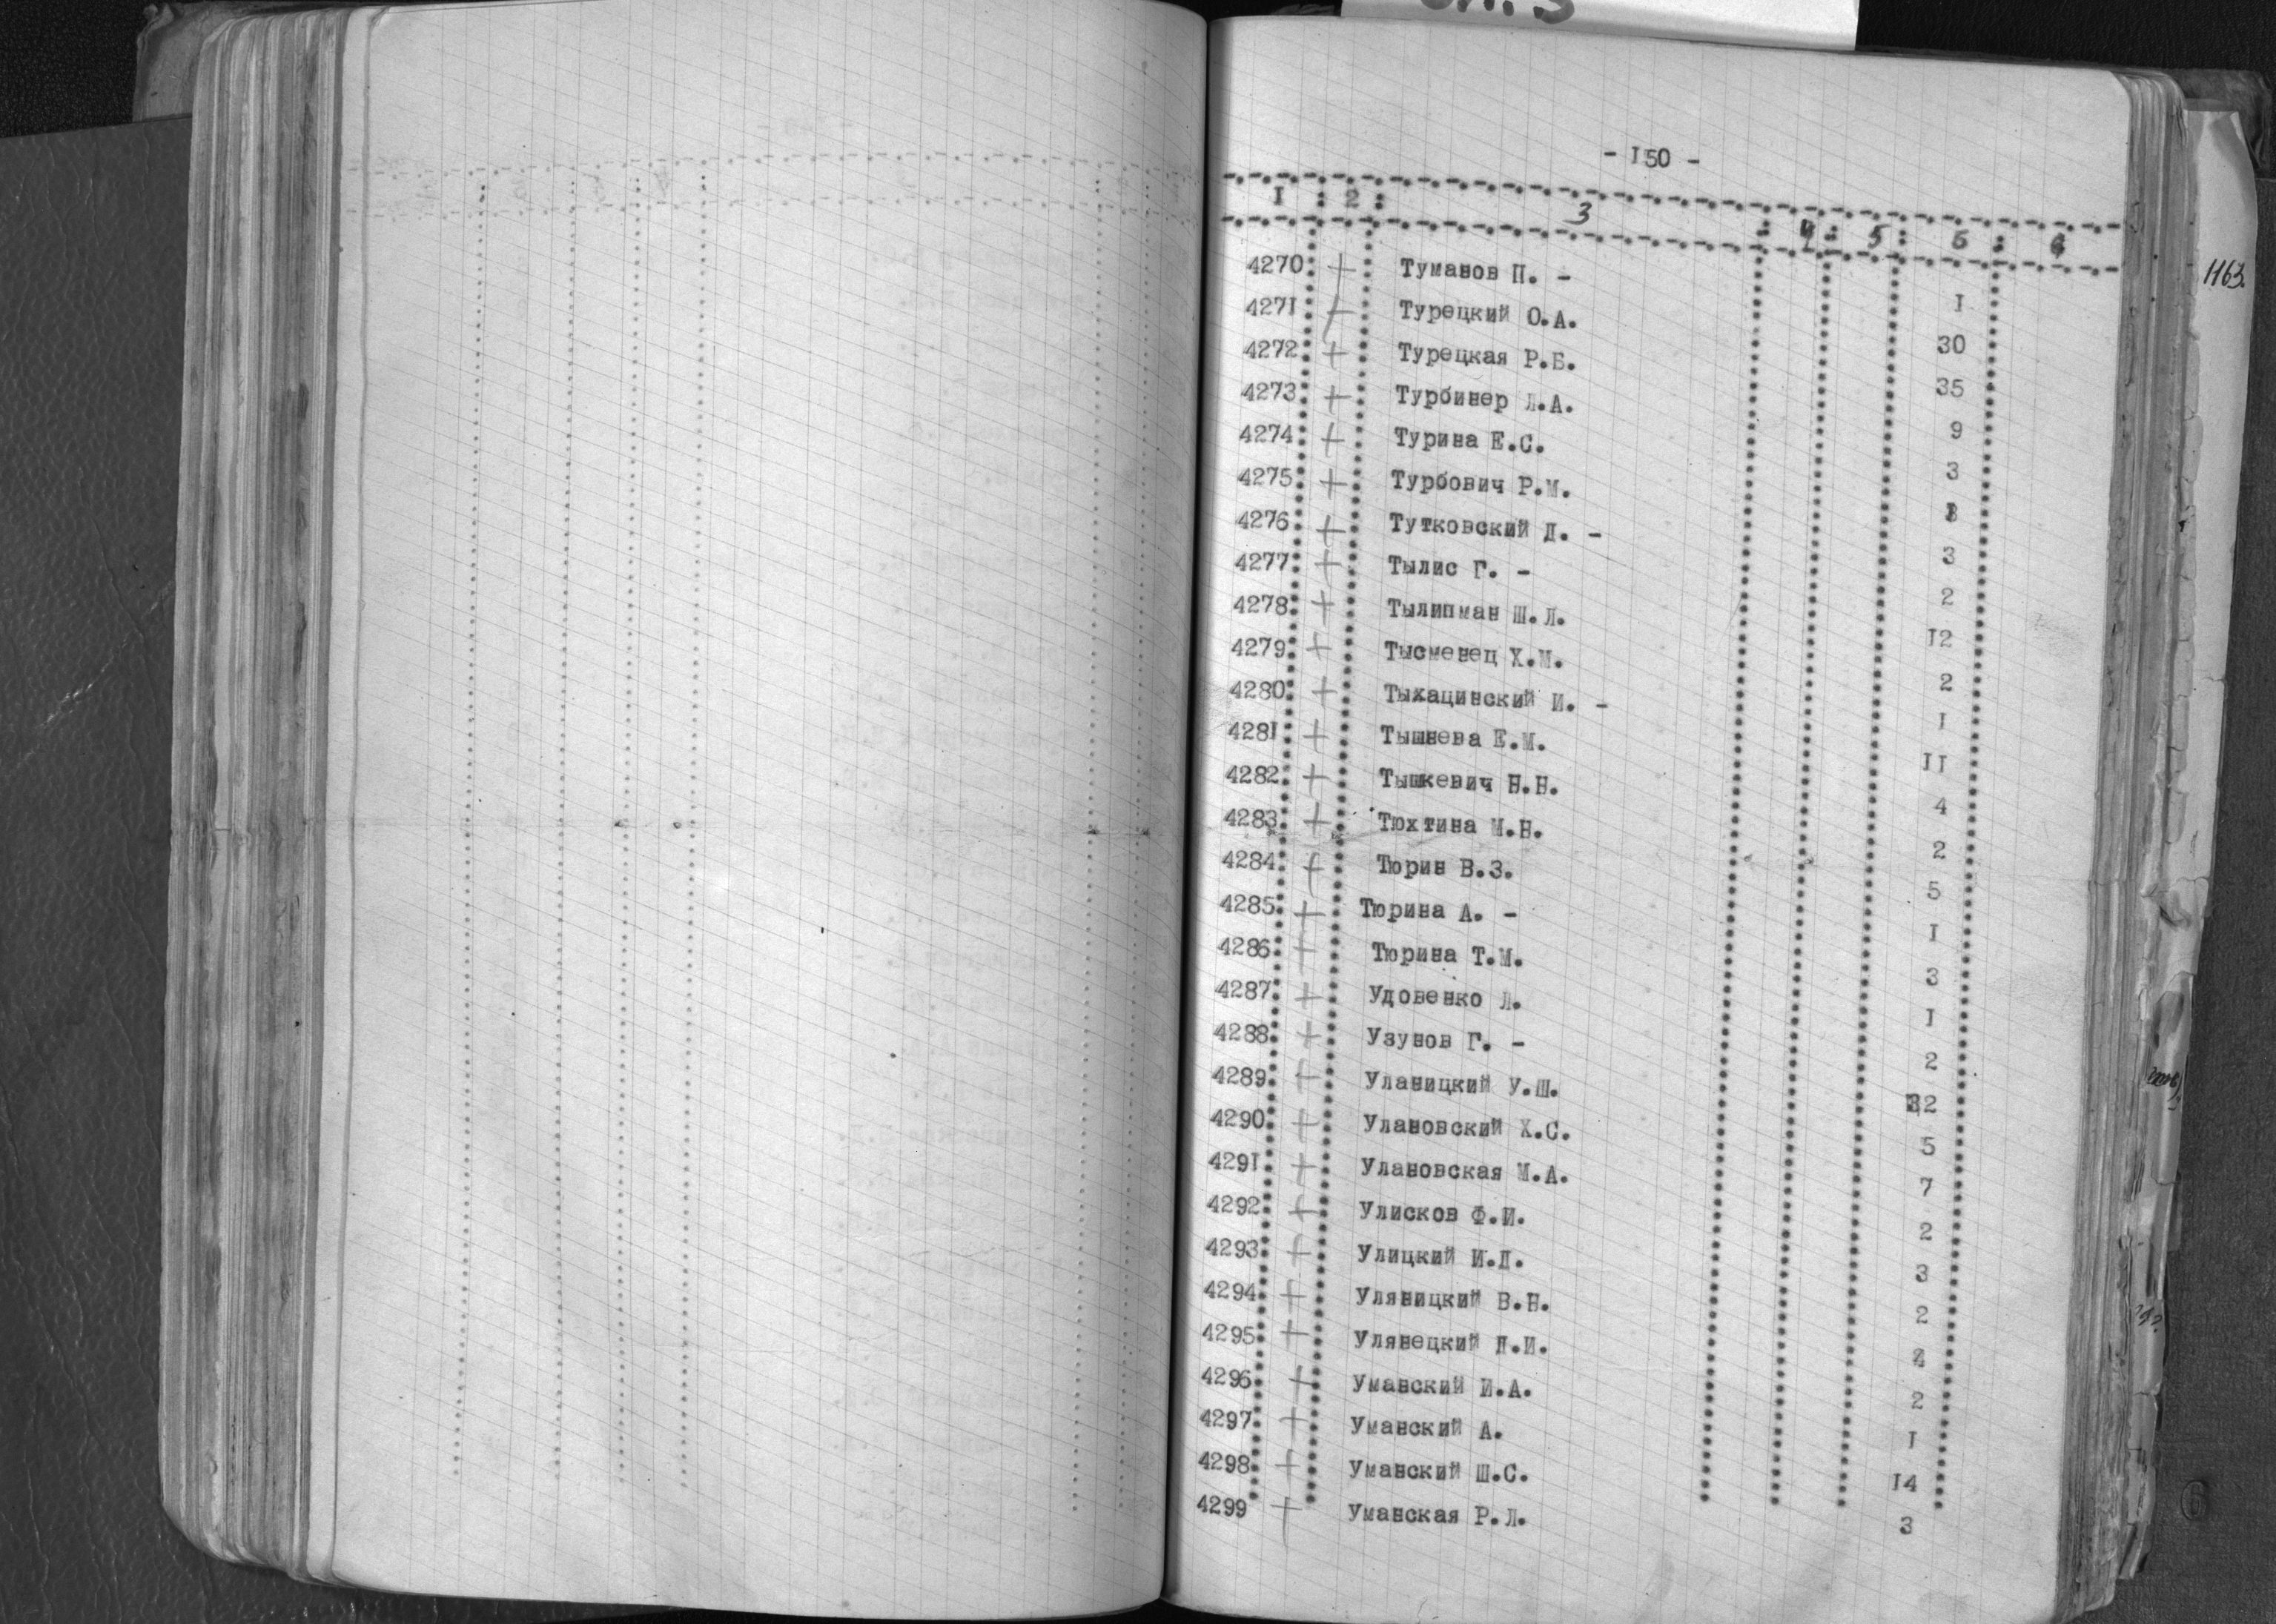 - 150 -
1 : 2 : 3 : 4 : 5 : 6 :
1163.
4270 + Туманов П. - 1
4271 + Турецкий О.А. 30
4272 + Турецкая Р.Б. 35
4273 + Турбинер Л.А. 9
4274 + Турина Е.С. 3
4275 + Турбович Р.М.
4276 + Тутковский Д. - 3
4277 + Тылис Г. - 2
4278 + Тылипман Ш.Л. 12
4279 + Тысменец Х.М. 2
4280 + Тыхацинский И. - 1
4281 + Тышнева Е.М. 11
4282 + Тышкевич Н.Н. 4
4283 + Тюхтина М.Н. 2
4284 + Тюрин В.З. 5
4285 + Тюрина А. - 1
4286 + Тюрина Т.М. 3
4287 + Удовенко Л. 1
4288 + Узунов Г. - 2
4289 + Уланицкий У.Ш. 32
4290 + Улановский Х.С. 5
4291 + Улановская М.А. 7
4292 + Улисков Ф.И. 2
4293 + Улицкий И.Д. 3
4294 + Уляницкий В.Н. 2
4295 + Улянецкий Д.И.
4296 + Уманский И.А. 2
4297 + Уманский А. 1
4298 + Уманский Ш.С. 14
4299 + Уманская Р.Л. 3